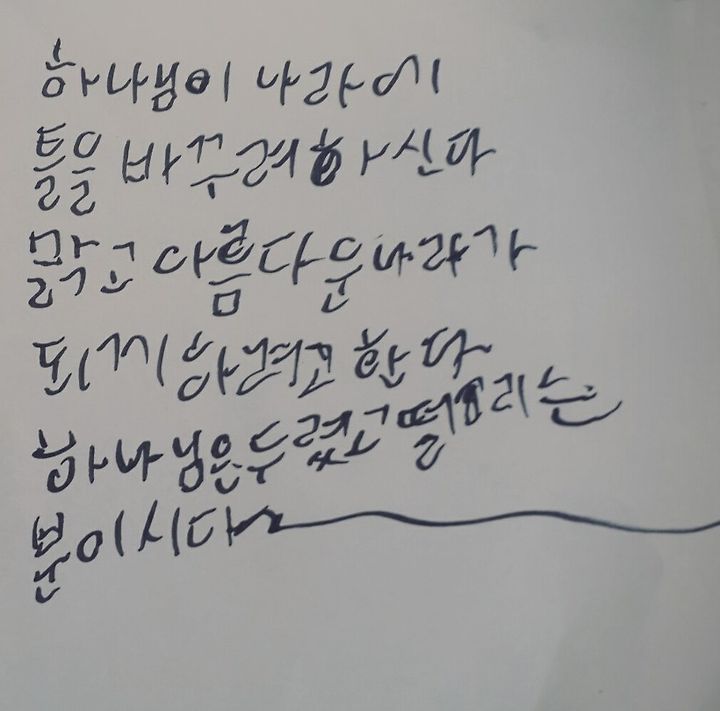 하나님이 나라에
틀을 바꾸려하신다
맑고 아름다운나라가
되기 하려고 한다
하나님은두렵고 떨리는
분이시다